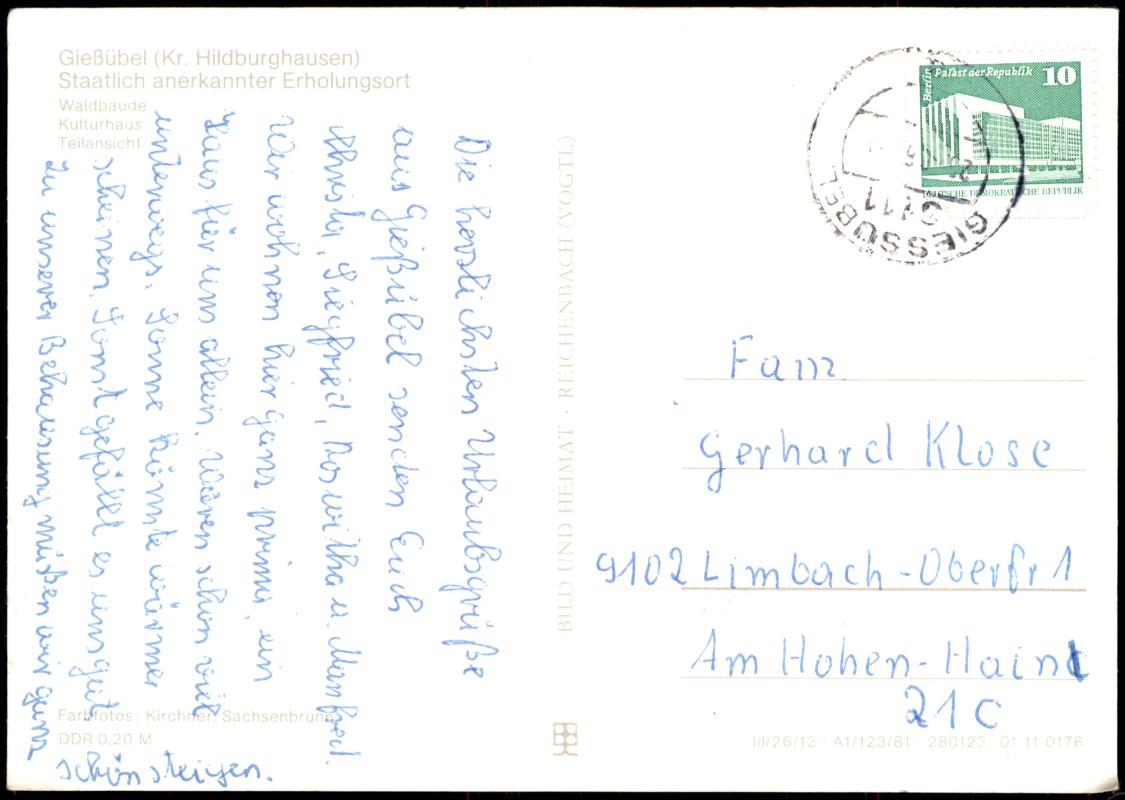 Gießübel (Kr. Hildburghausen)
Staatlich anerkannter Erholungsort
Waldbaude
Kulturhaus
Teilansicht
Die herzlichsten Urlaubsgrüße
aus Gießübel senden Euch
Christa, Siegfried, Roswitha u. Manfred.
Wir wohnen hier ganz prima, ein
Haus für uns allein. Waren schon viel
unterwegs. Sonne könnte wärmer
scheinen. Sonst gefällt es uns gut
Zu unserer Behausung müßen wir ganz
schön steigen.
Farbfotos: Kirchner, Sachsenbrunn
DDR 0,20 M
BILD UND HEIMAT · REICHENBACH (VOGTL.)
Berlin Palast der Republik 10
DEUTSCHE DEMOKRATISCHE REPUBLIK
GIESSÜBEL
6111
Fam.
Gerhard Klose
9102 Limbach-Oberfr 1
Am Hohen-Hain
21c
III/26/13 · A1/123/81 · 280123 01 11 0176